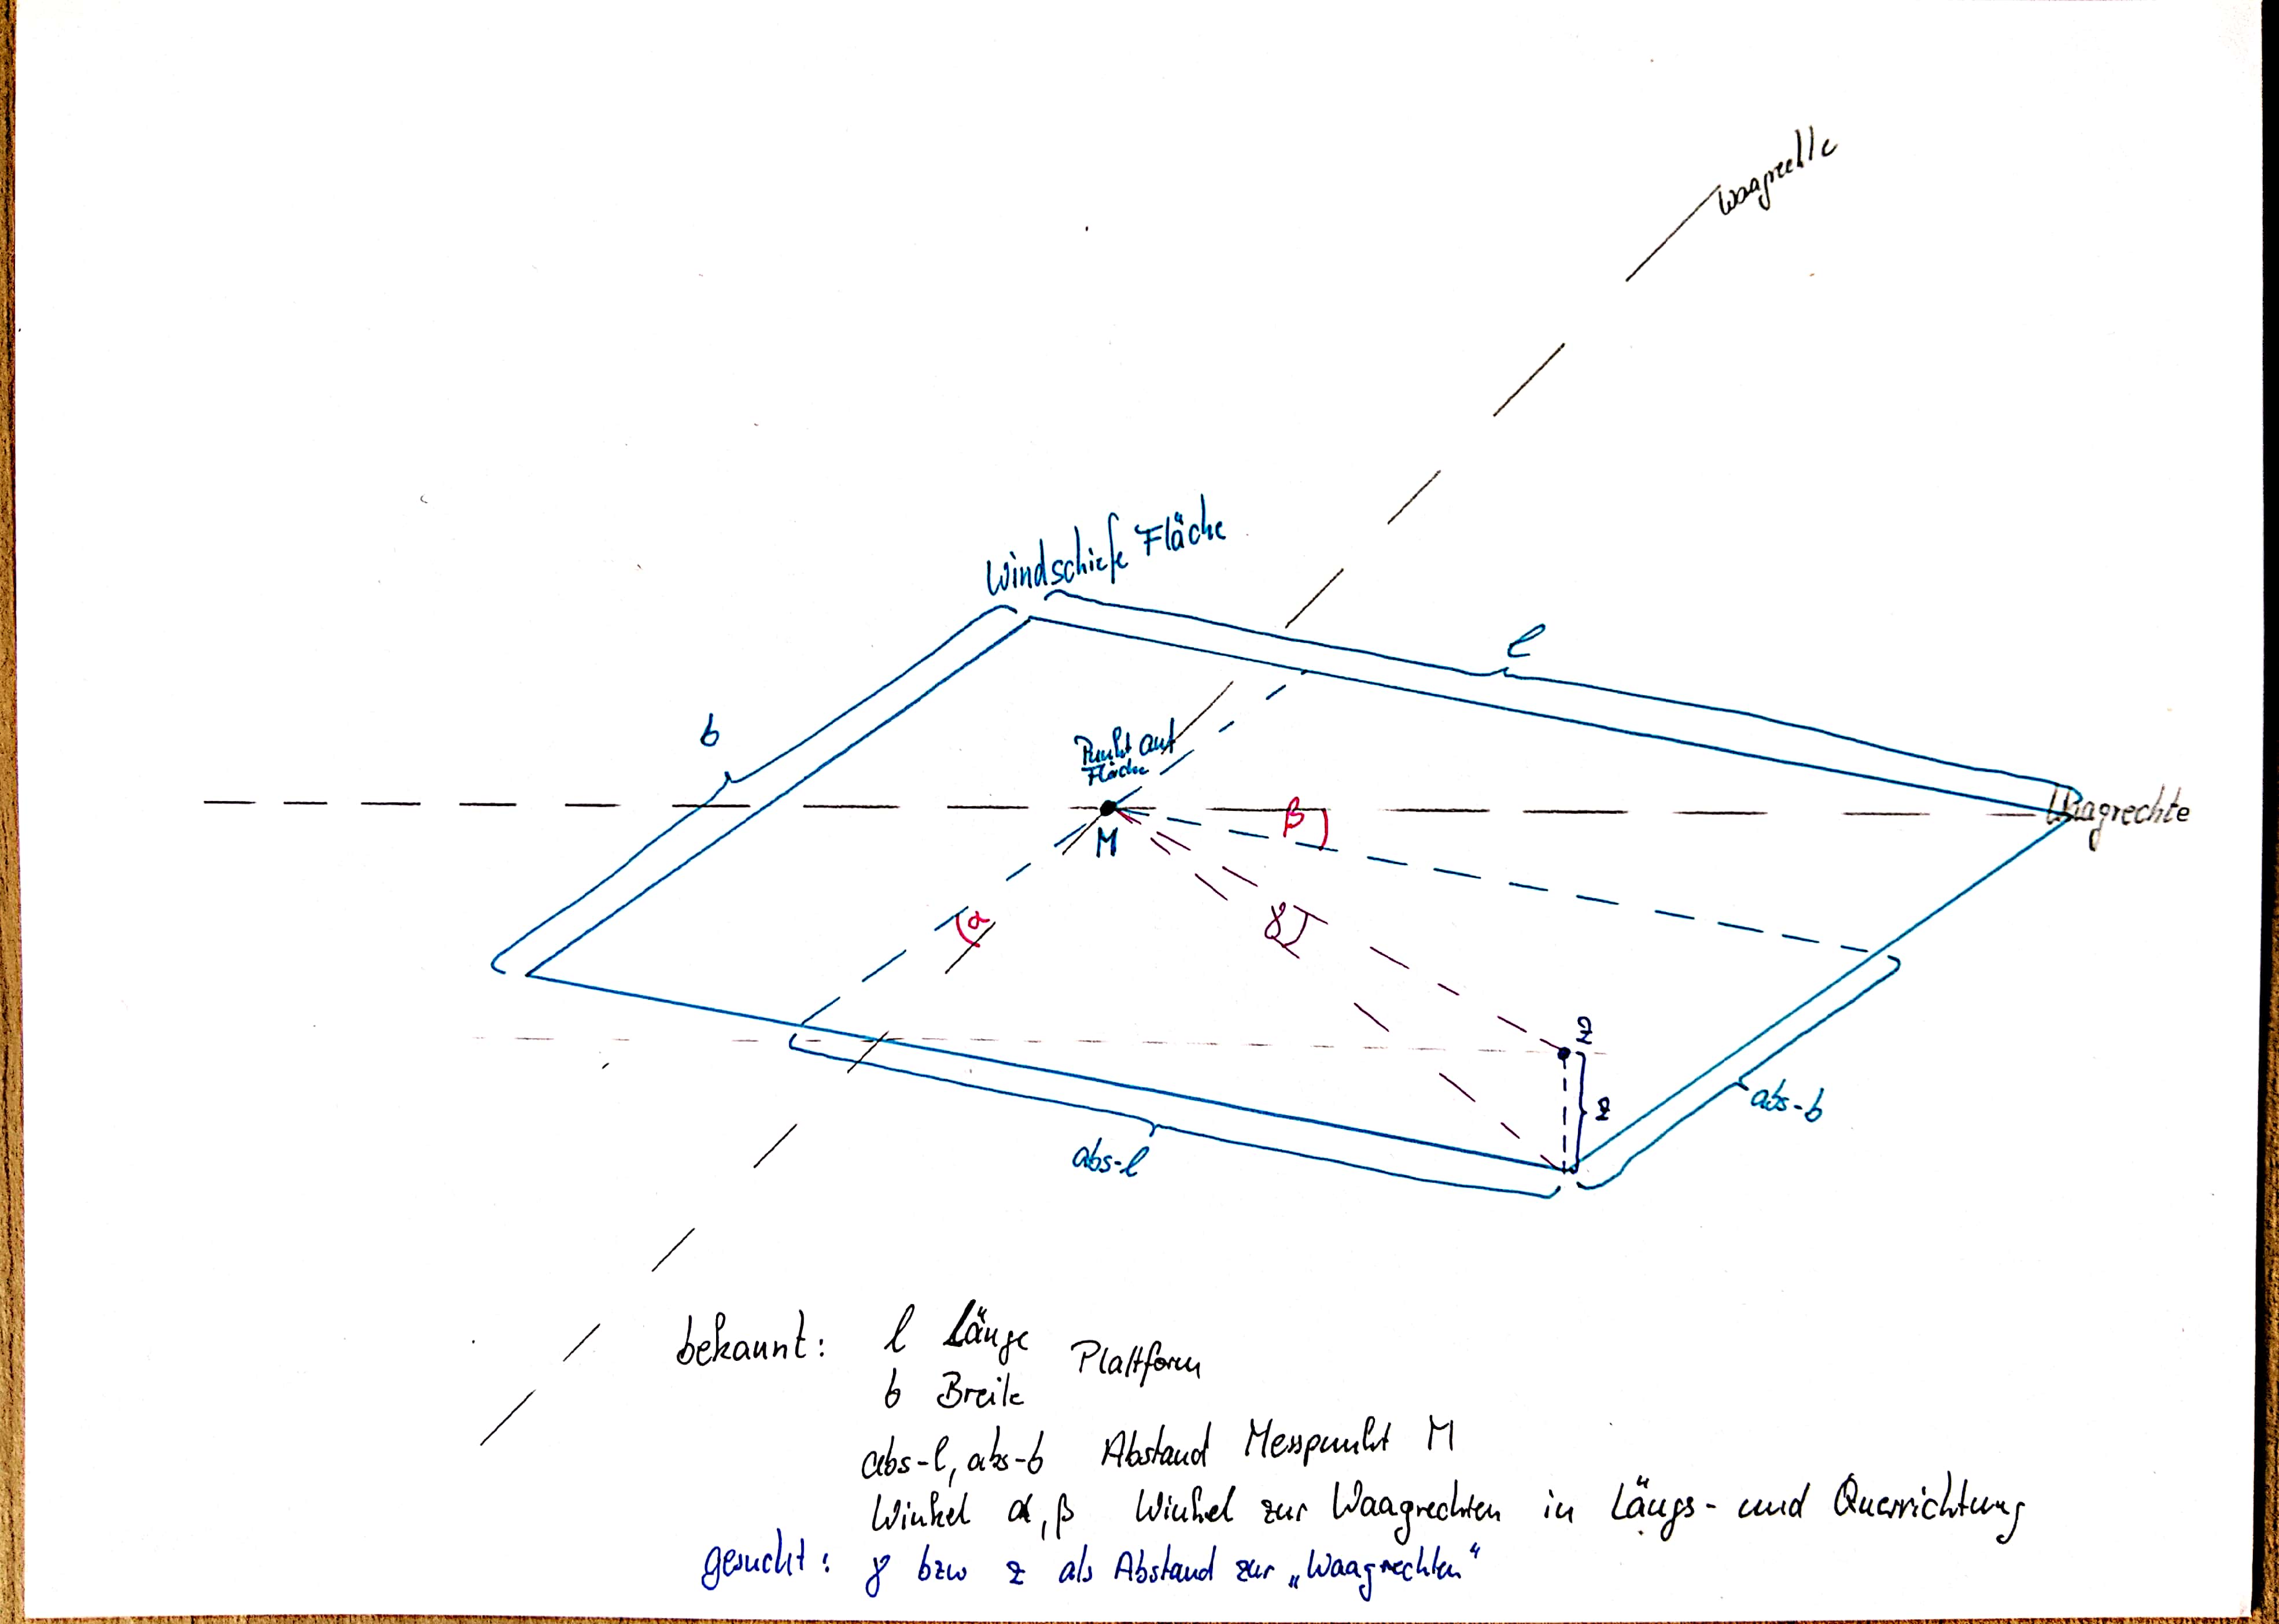 Waagrechte
Windschiefe Fläche
l
b
Punkt auf
Fläche
M
β
Waagrechte
α
γ
z
z
abs-b
abs-l
bekannt: l Länge
Plattform
b Breite
abs-l, abs-b Abstand Messpunkt M
Winkel α, β Winkel zur Waagrechten in Längs- und Querrichtung
gesucht: γ bzw z als Abstand zur „Waagrechten“